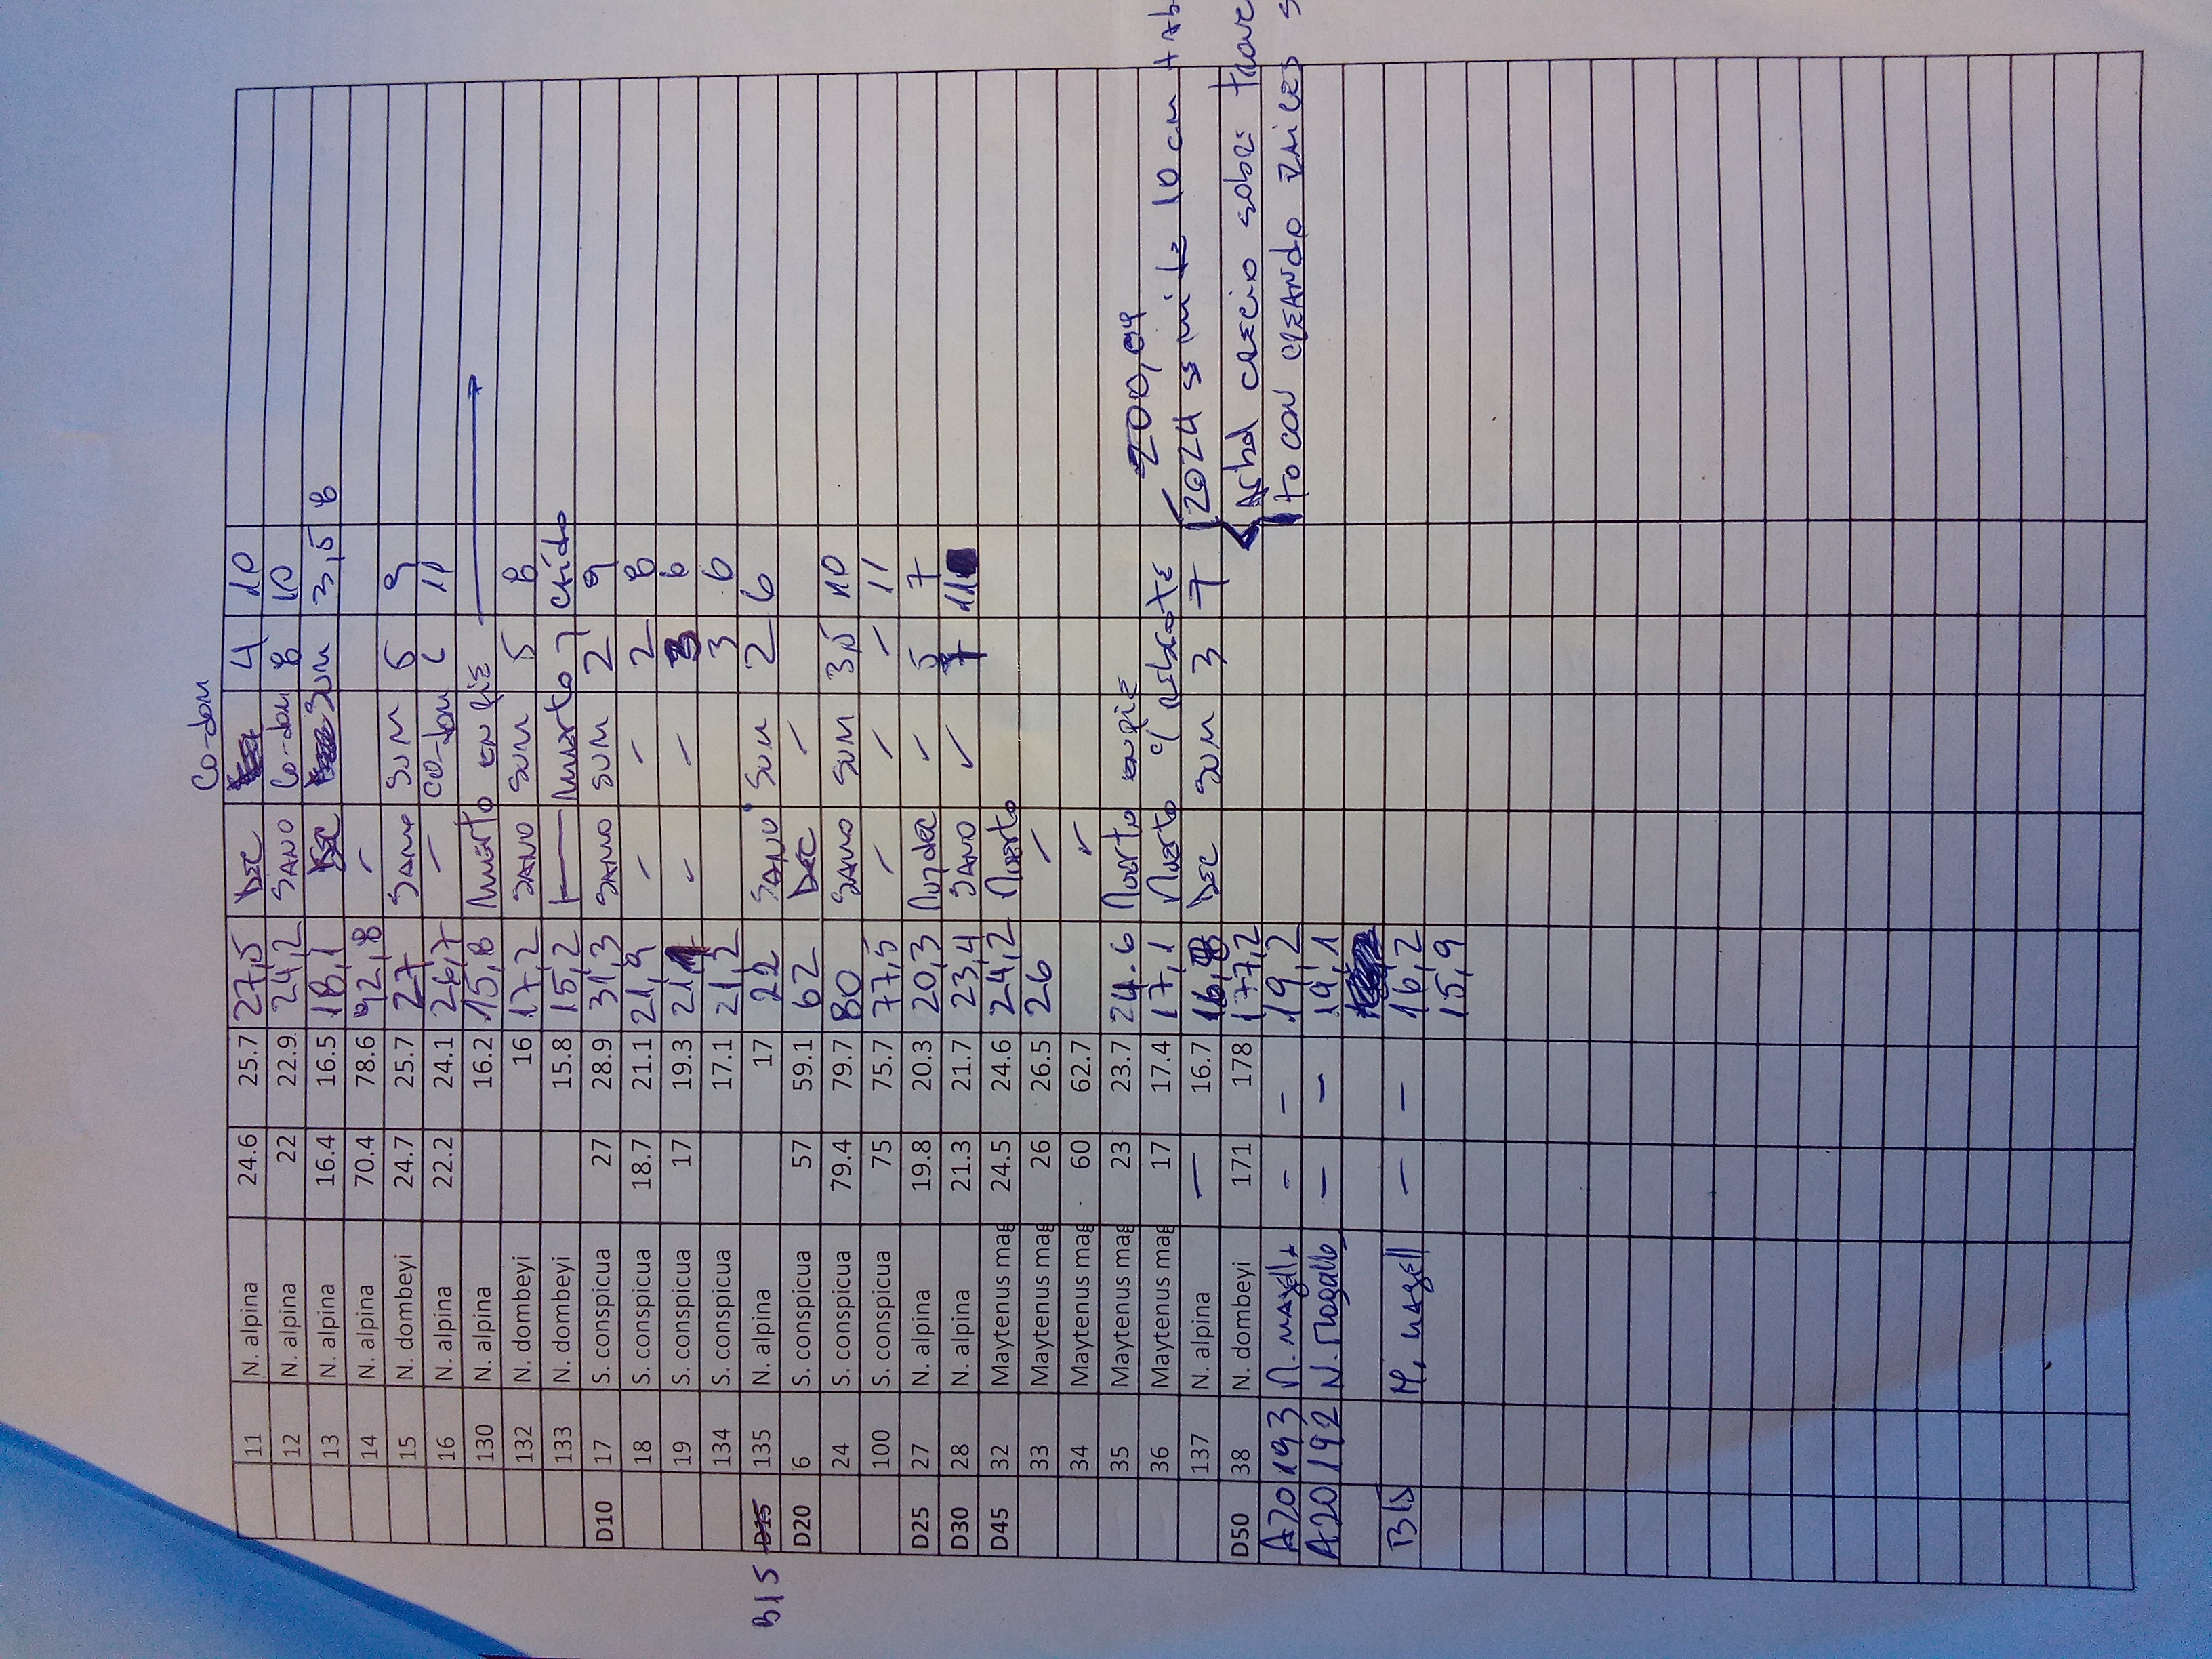 Co-dom
11 N. alpina 24.6 25.7 27,5 DEC 4 10
12 N. alpina 22 22.9 24,2 SANO Co-dom 8 10
13 N. alpina 16.4 16.5 18,1 DEC SUM 3,5 8
14 N. alpina 70.4 78.6 92,8 -
15 N. dombeyi 24.7 25.7 27 SANO SUM 5 9
16 N. alpina 22.2 24.1 26,7 - CO-dom 6 11
130 N. alpina 16.2 15,8 Muerto EN PIE
132 N. dombeyi 16 17,2 SANO SUM 5 8
133 N. dombeyi 15.8 15,2 Muerto y caído
D10 17 S. conspicua 27 28.9 31,3 SANO SUM 2 9
18 S. conspicua 18.7 21.1 21,9 - - 2 8
19 S. conspicua 17 19.3 21,1 - - 3 6
134 S. conspicua 17.1 21,2 3 6
B15 D15 135 N. alpina 17 22 SANO SUM 2 6
D20 6 S. conspicua 57 59.1 62 DEC -
24 S. conspicua 79.4 79.7 80 SANO SUM 3,5 10
100 S. conspicua 75 75.7 77,5 - - - 11
D25 27 N. alpina 19.8 20.3 20,3 Muy dec - 5 7
D30 28 N. alpina 21.3 21.7 23,4 SANO - 7 11
D45 32 Maytenus mag 24.5 24.6 24,2 Muerto
33 Maytenus mag 26 26.5 26 -
34 Maytenus mag 60 62.7 -
35 Maytenus mag 23 23.7 24.6 Muerto en PIE
200,04
36 Maytenus mag 17 17.4 17,1 Muerto c/ rebrote
2024 se mide 10 cm + ab
137 N. alpina — 16.7 16,8 DEC SUM 3 7
D50 38 N. dombeyi 171 178 177,2 Arbol crecio sobre tronc
A20 193 M. magella - - 19,2 to con creando raices s
A20 192 N. Magalla — — 19,1
B15 M. magell — — 16,2
15,9